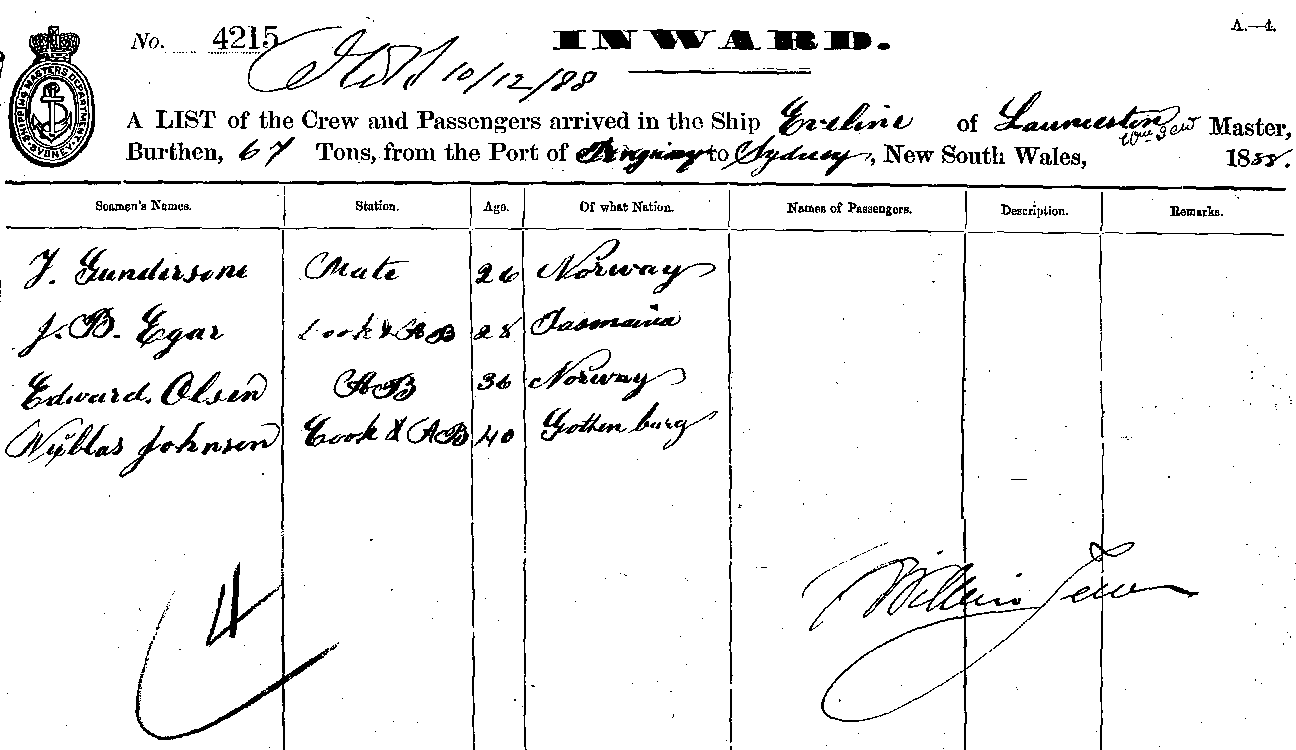 No. 4215 INWARD. A.—4.
10/12/88
A LIST of the Crew and Passengers arrived in the Ship Eveline of Launceston Wm Jew Master,
Burthen, 67 Tons, from the Port of to Sydney, New South Wales, 1888.
SHIPPING MASTERS DEPARTMENT SYDNEY
Seamen's Names. Station. Age. Of what Nation. Names of Passengers. Description. Remarks.
J. Gundersone Mate 26 Norway
J. B. Egar Cook & AB 28 Tasmania
Edward Olsen AB 36 Norway
Johnsen Cook & AB 40 Gothenburg
4
William Jew